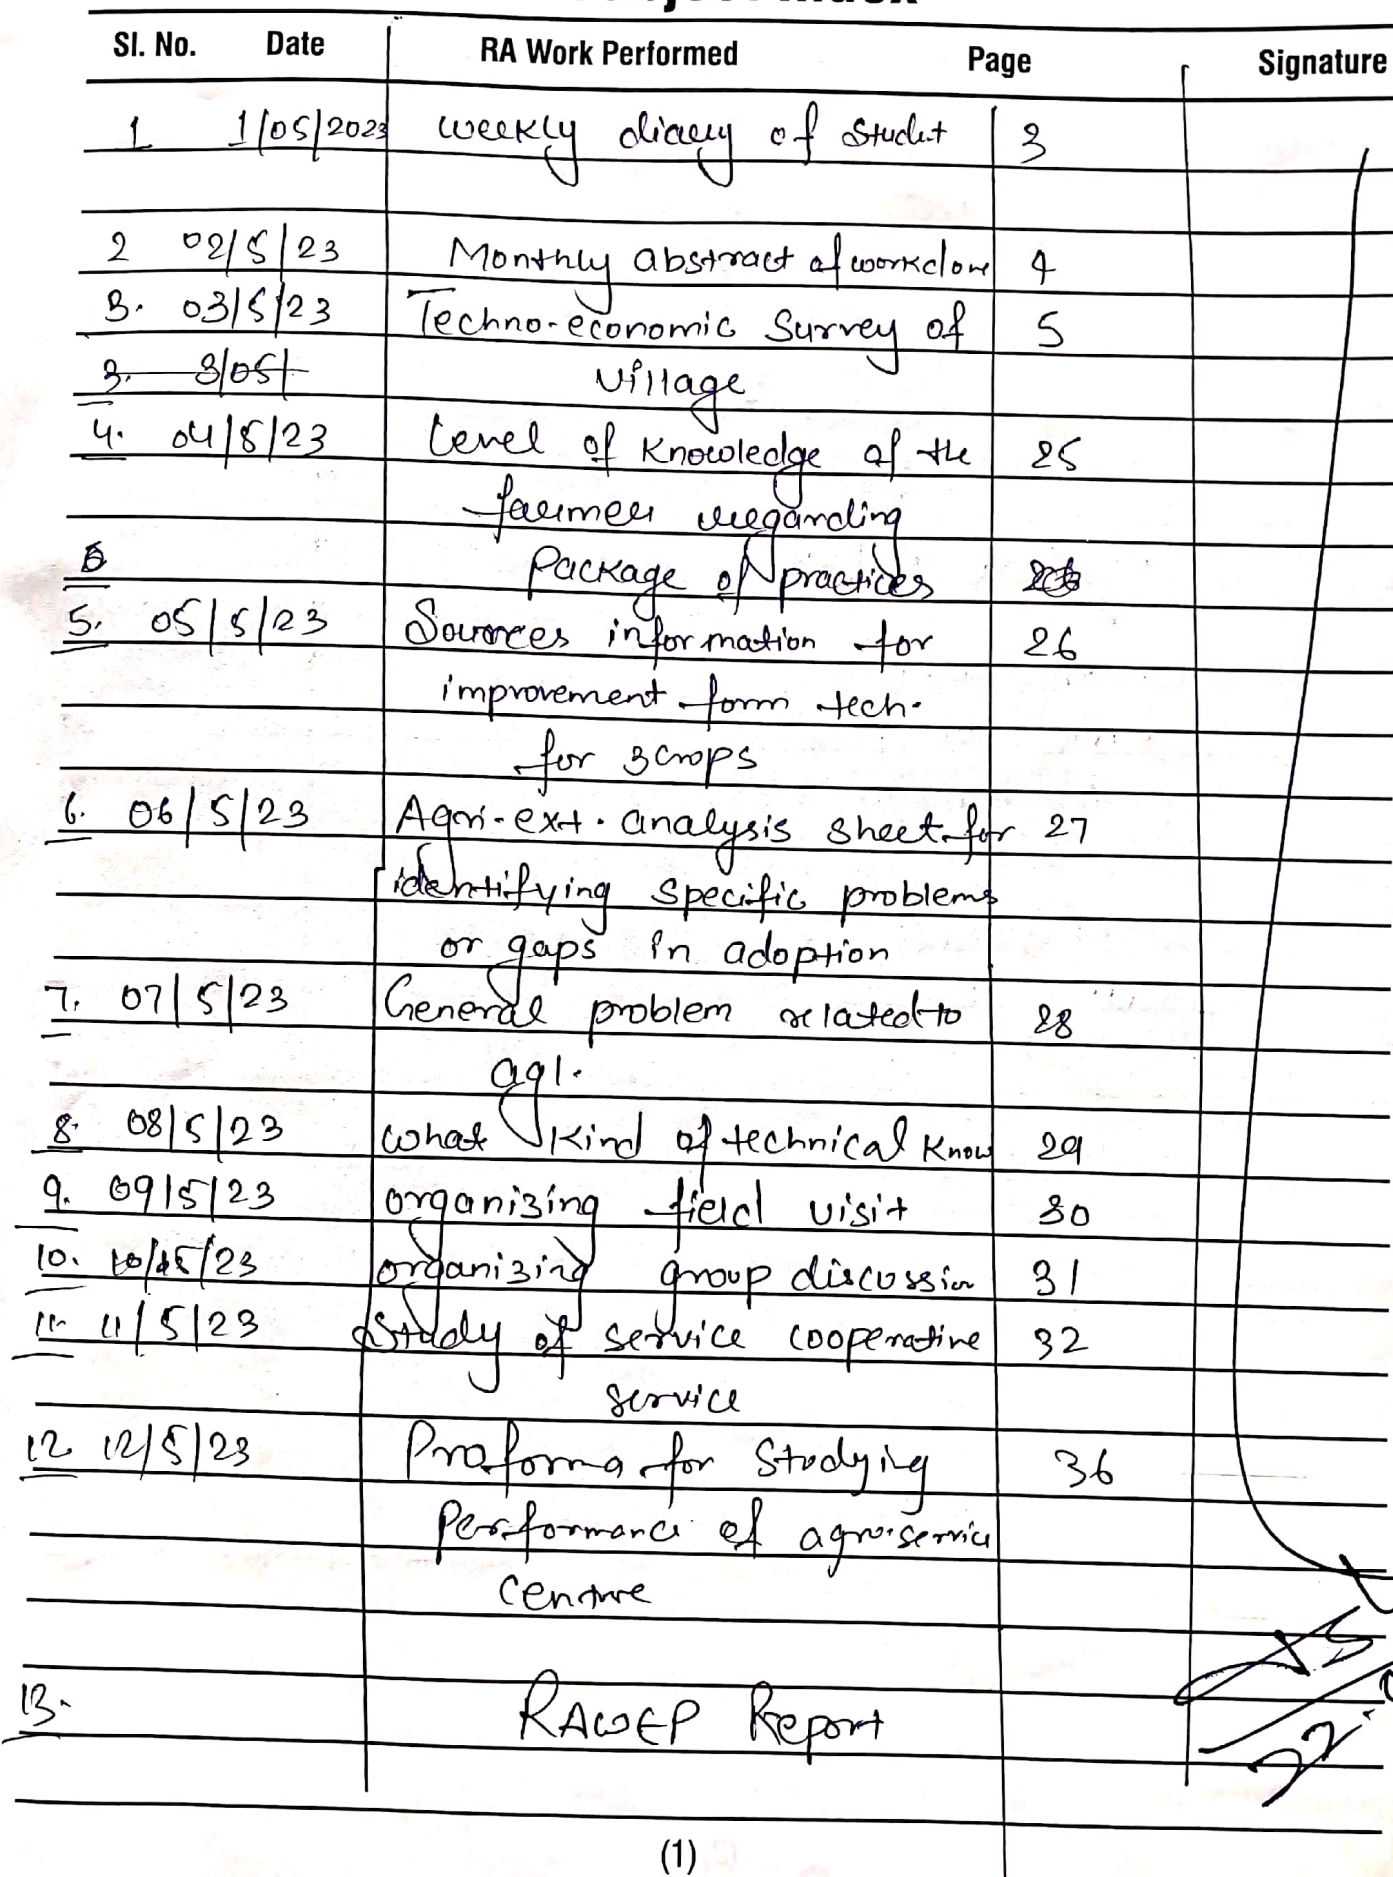 Sl. No. Date RA Work Performed Page Signature
1 1/05/2023 weekly diary of Student 3
2 02/5/23 Monthly abstract of workdone 4
3. 03/5/23 Techno-economic Survey of 5
3. 3/05/ village
4. 04/5/23 Level of Knowledge of the 25
farmer regarding
Package of practices
5. 05/5/23 Sources information for 26
improvement form tech.
for 3 crops
6. 06/5/23 Agri-ext. analysis sheet for 27
identifying specific problems
or gaps in adoption
7. 07/5/23 General problem related to 28
agl.
8. 08/5/23 what kind of technical know 29
9. 09/5/23 organizing field visit 30
10. 10/5/23 organizing group discussion 31
11. 11/5/23 Study of service cooperative 32
service
12 12/5/23 Proforma for Studying 36
Performance of agro-service
Centre
13. RAWEP Report
(1)